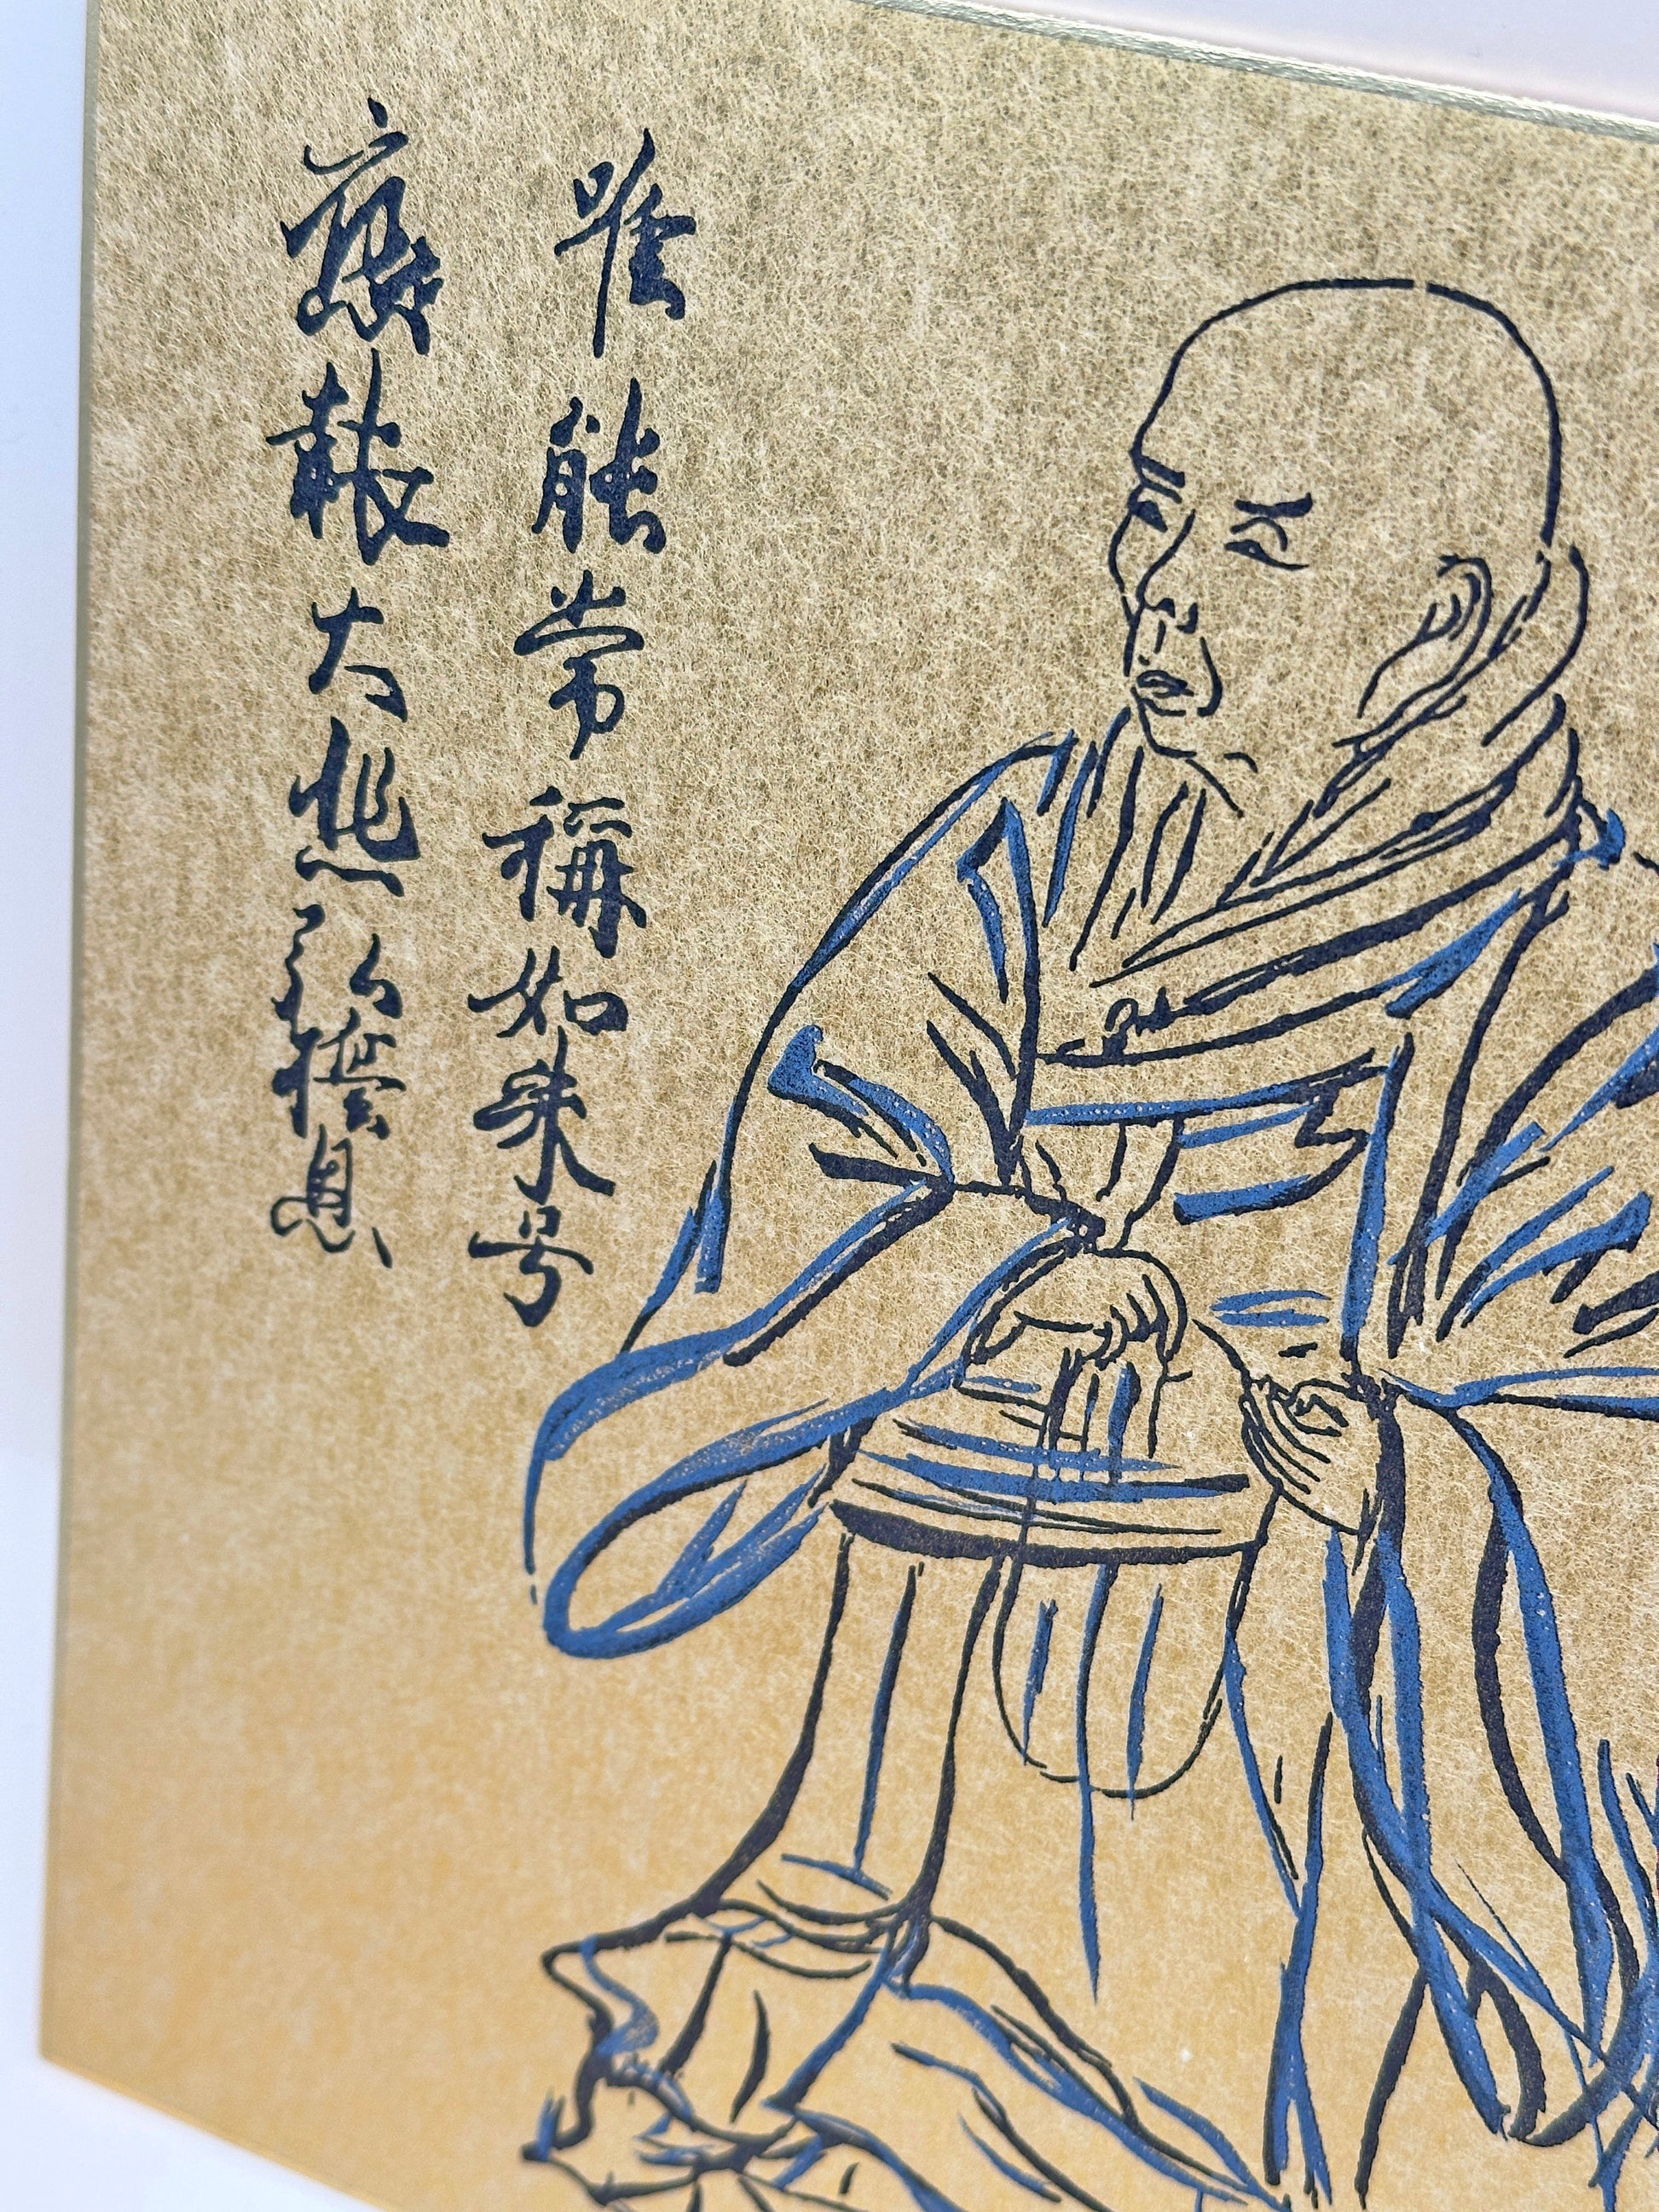 唯能常稱如来号
應報大悲弘誓恩